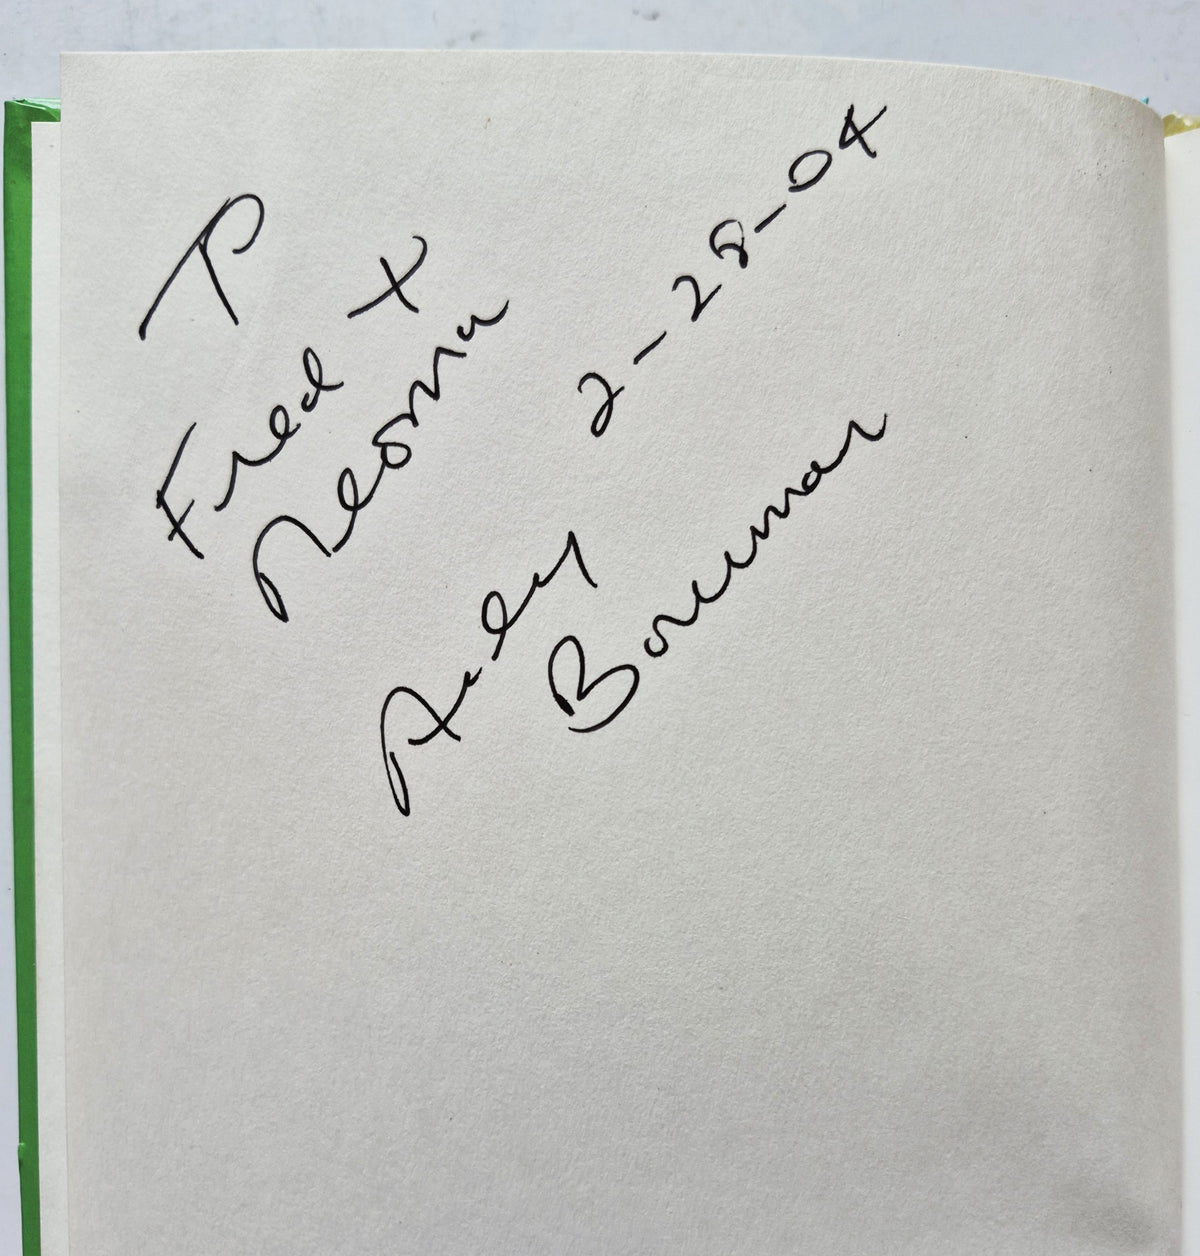 To
Fred +
Neoma
2-28-04
Acley
Bowman